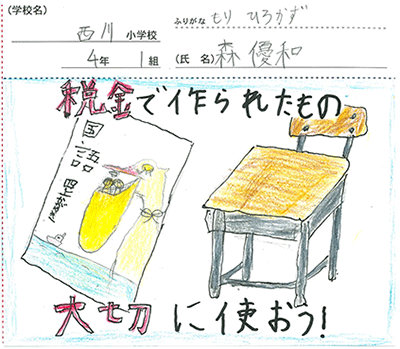 (学校名)
西川 小学校
4年 1組
ふりがな もり ひろかず
(氏名) 森 優和
税金で作られたもの
国語
大切に使おう!